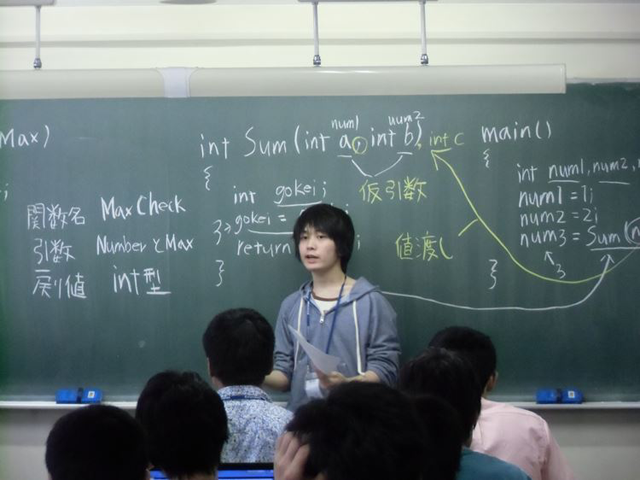 Max)
;
関数名 MaxCheck
引数 NumberとMax
戻り値 int型
num1 num2
int Sum(int a, int b), int c
{
int gokei;
gokei =
return
}
仮引数
値渡し
main()
{
int num1, num2,
num1 = 1;
num2 = 2;
num3 = Sum(
3
}